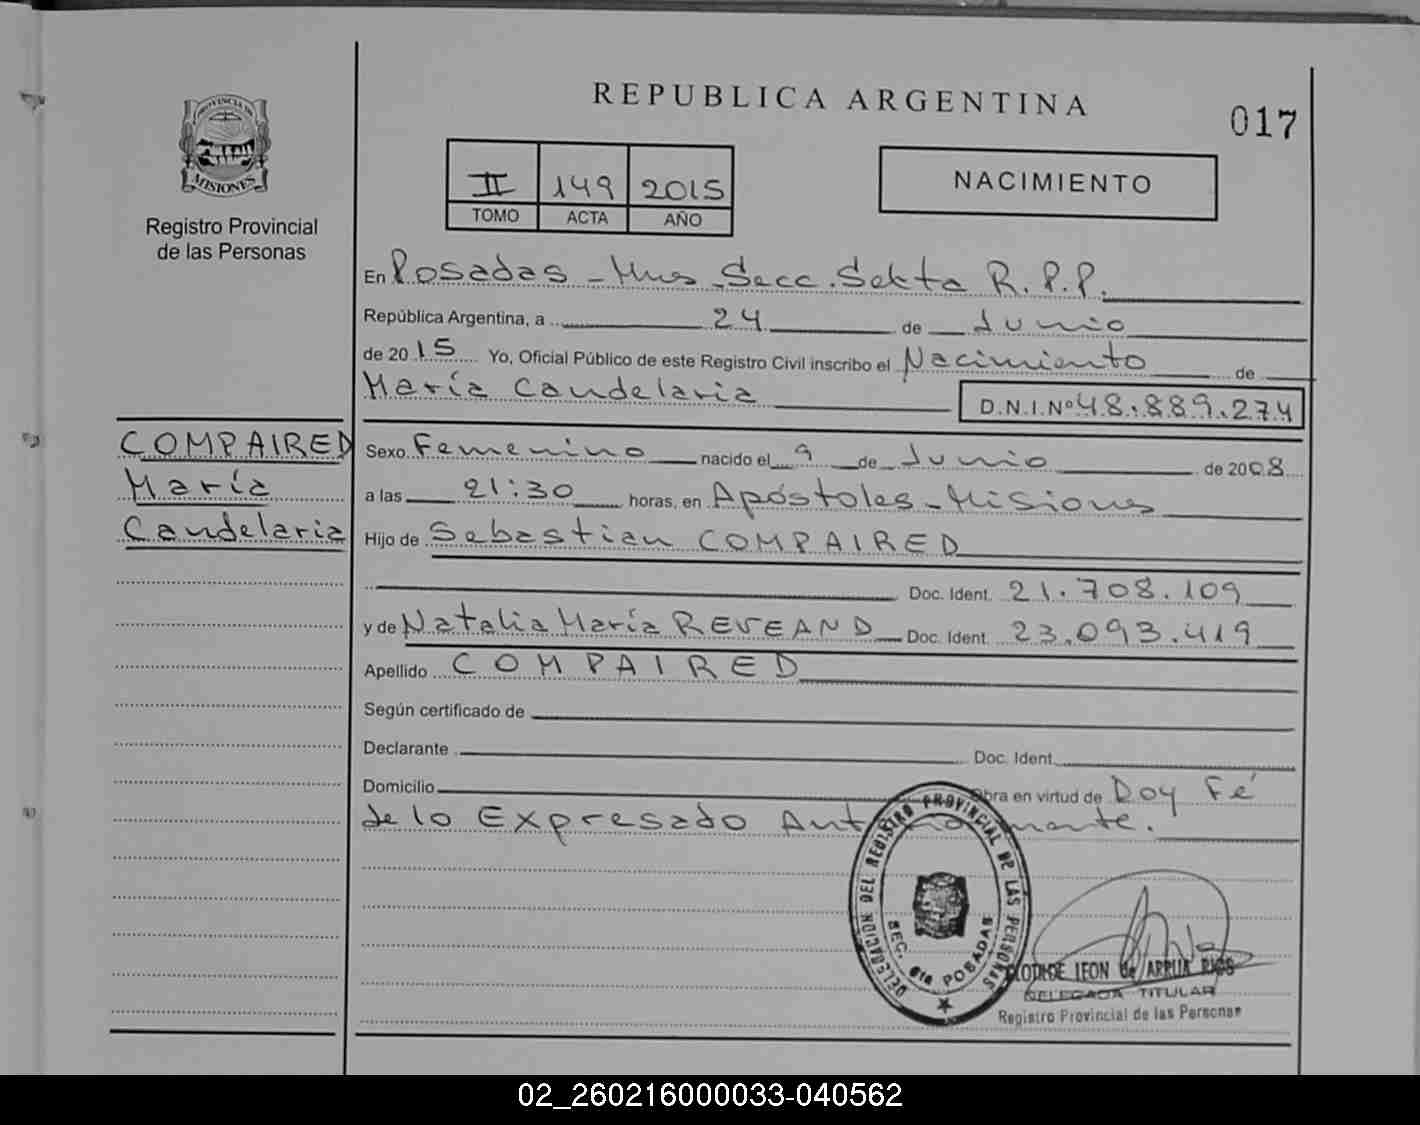 REPUBLICA ARGENTINA
017
PROVINCIA DE
MISIONES
Registro Provincial
de las Personas
II 149 2015
TOMO ACTA AÑO
NACIMIENTO
En Posadas - Mnes Secc. Sexta R.P.P.
República Argentina, a 24 de Junio
de 2015 Yo, Oficial Público de este Registro Civil inscribo el Nacimiento de
María Candelaria D.N.I.Nº 48.889.274
COMPAIRED
María
Candelaria
Sexo Femenino nacido el 9 de Junio de 2008
a las 21:30 horas, en Apóstoles - Misiones
Hijo de Sebastian COMPAIRED
Doc. Ident. 21.708.109
y de Natalia María REVEAND Doc. Ident. 23.093.419
Apellido COMPAIRED
Según certificado de
Declarante Doc. Ident.
Domicilio Obra en virtud de Doy Fé
de lo Expresado
DELEGACION DEL REGISTRO PROVINCIAL DE LAS PERSONAS
SEC. 6ta POSADAS
LEON de ARRUA RIOS
DELEGADA TITULAR
Registro Provincial de las Personas
02_260216000033-040562